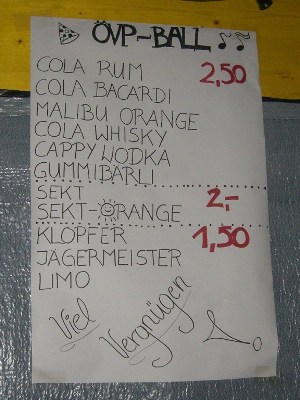 ÖVP-BALL
COLA RUM 2,50
COLA BACARDI
MALIBU ORANGE
COLA WHISKY
CAPPY WODKA
GUMMIBÄRLI
SEKT
SEKT-ORANGE 2,-
KLOPFER 1,50
JÄGERMEISTER
LIMO
Viel
Vergnügen